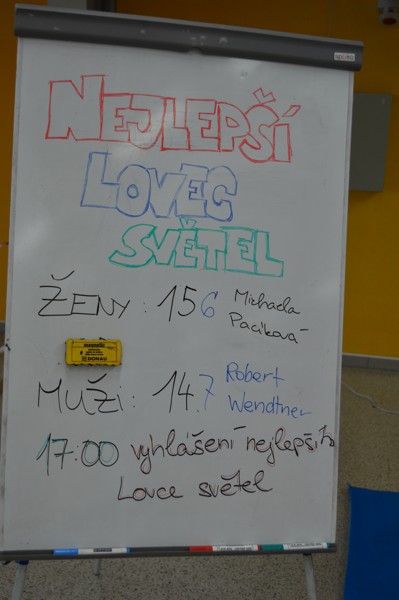 NEJLEPŠÍ
LOVEC
SVĚTEL
ŽENY: 156 Michaela Pacíková
DONAU
MUŽI: 147 Robert Wendtner
17:00 vyhlášení nejlepšího
Lovce světel